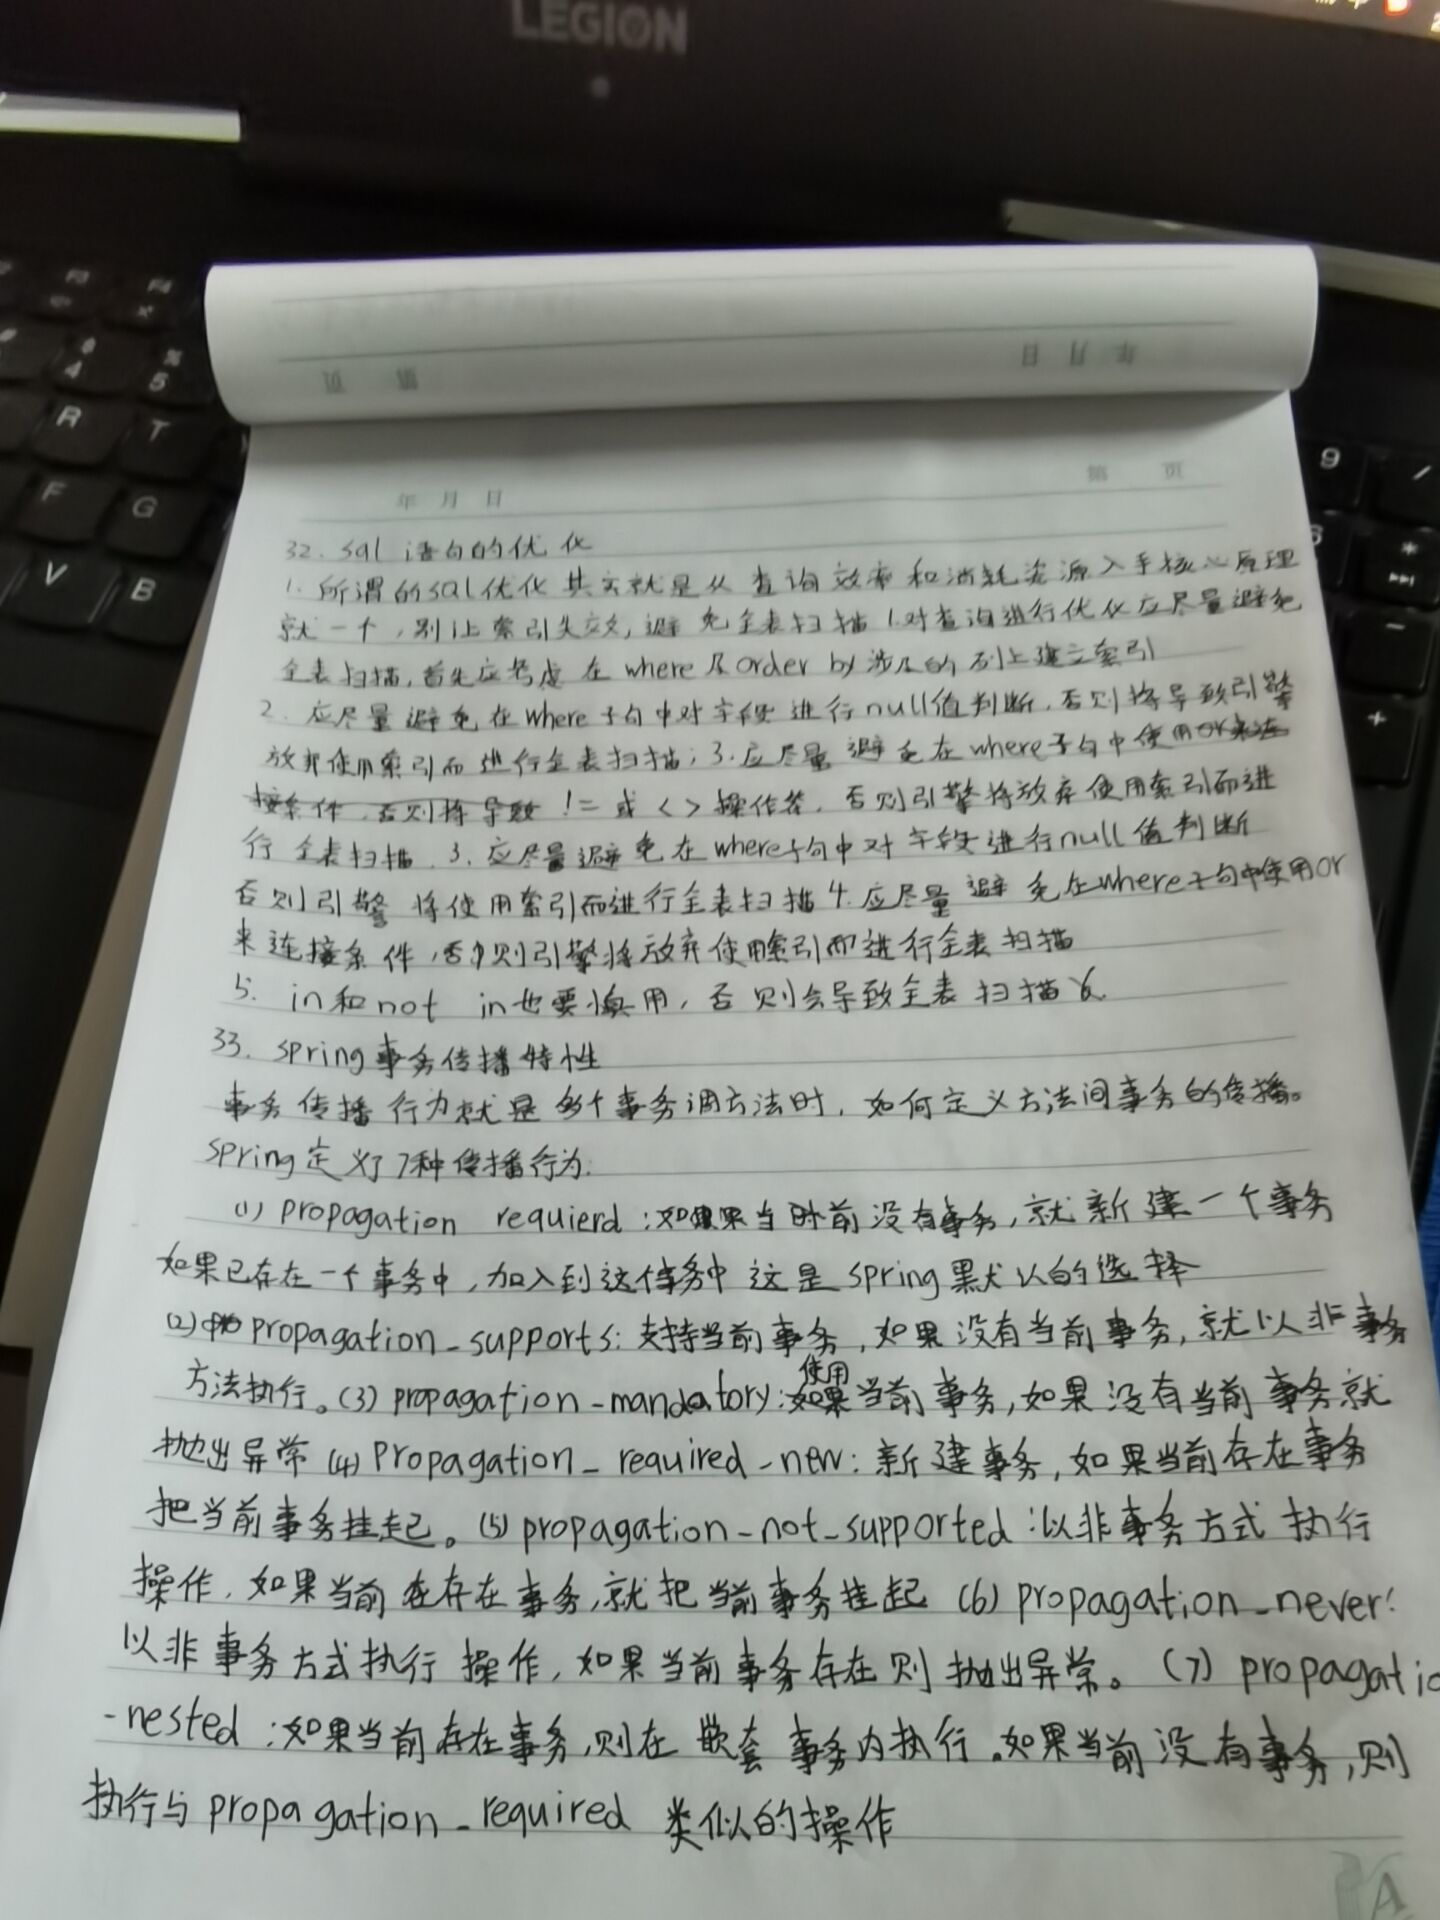 LEGION
F3
F4
4
%
5
R
T
F
G
V
B
9
/
6
*
-
+
年 月 日
第 页
年 月 日
第 页
32. sql 语句的优化
1. 所谓的sql优化其实就是从查询效率和消耗资源入手核心原理
就一个，别让索引失效，避免全表扫描 1.对查询进行优化应尽量避免
全表扫描，首先应考虑在where及order by涉及的列上建立索引
2. 应尽量避免在where子句中对字段进行null值判断，否则将导致引擎
放弃使用索引而进行全表扫描；3. 应尽量避免在where子句中使用or来连
接条件，否则将导致 != 或 <> 操作符，否则引擎将放弃使用索引而进
行全表扫描. 3. 应尽量避免在where子句中对字段进行null值判断
否则引擎将使用索引而进行全表扫描 4. 应尽量避免在where子句中使用or
来连接条件，否则引擎将放弃使用索引而进行全表扫描
5. in和not in也要慎用，否则会导致全表扫描
33. spring事务传播特性
事务传播行为就是多个事务调方法时，如何定义方法间事务的传播。
spring定义了7种传播行为:
(1) propagation requierd:如果当时前没有事务，就新建一个事务
如果已存在一个事务中，加入到这个事务中 这是spring默认的选择
(2) propagation_supports: 支持当前事务，如果没有当前事务，就以非事务
方法执行。(3) propagation_mandatory:使用当前事务，如果没有当前事务就
抛出异常 (4) propagation_required_new: 新建事务，如果当前存在事务
把当前事务挂起。(5) propagation_not_supported:以非事务方式执行
操作，如果当前在存在事务，就把当前事务挂起 (6) propagation_never:
以非事务方式执行操作，如果当前事务存在则抛出异常。(7) propagatio
-nested:如果当前存在事务，则在嵌套事务内执行。如果当前没有事务，则
执行与propagation_required 类似的操作
A